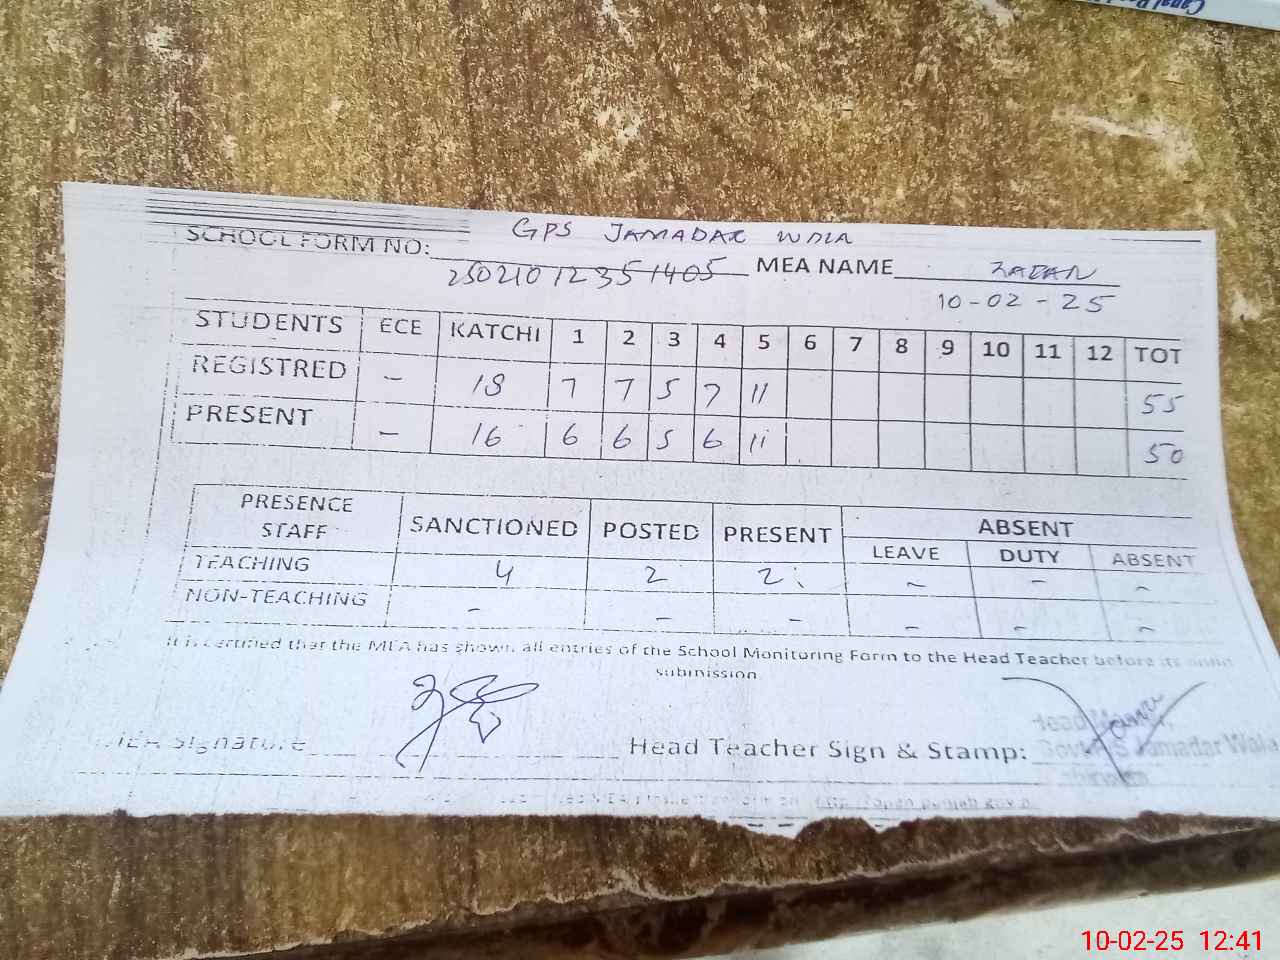 Canal
GPS JAMADAR WALA
SCHOOL FORM NO: 2502101235 1405 MEA NAME
10-02-25
STUDENTS ECE KATCHI 1 2 3 4 5 6 7 8 9 10 11 12 TOT
REGISTRED - 18 7 7 5 7 11 55
PRESENT - 16 6 6 5 6 11 50
PRESENCE STAFF SANCTIONED POSTED PRESENT ABSENT
LEAVE DUTY ABSENT
TEACHING 4 2 2 - - -
NON-TEACHING - - - - - -
It is certified that the MEA has shown all entries of the School Monitoring Form to the Head Teacher before its
submission
MEA Signature Head Teacher Sign & Stamp:
Head
Govt P/S Jamadar Wala
10-02-25 12:41